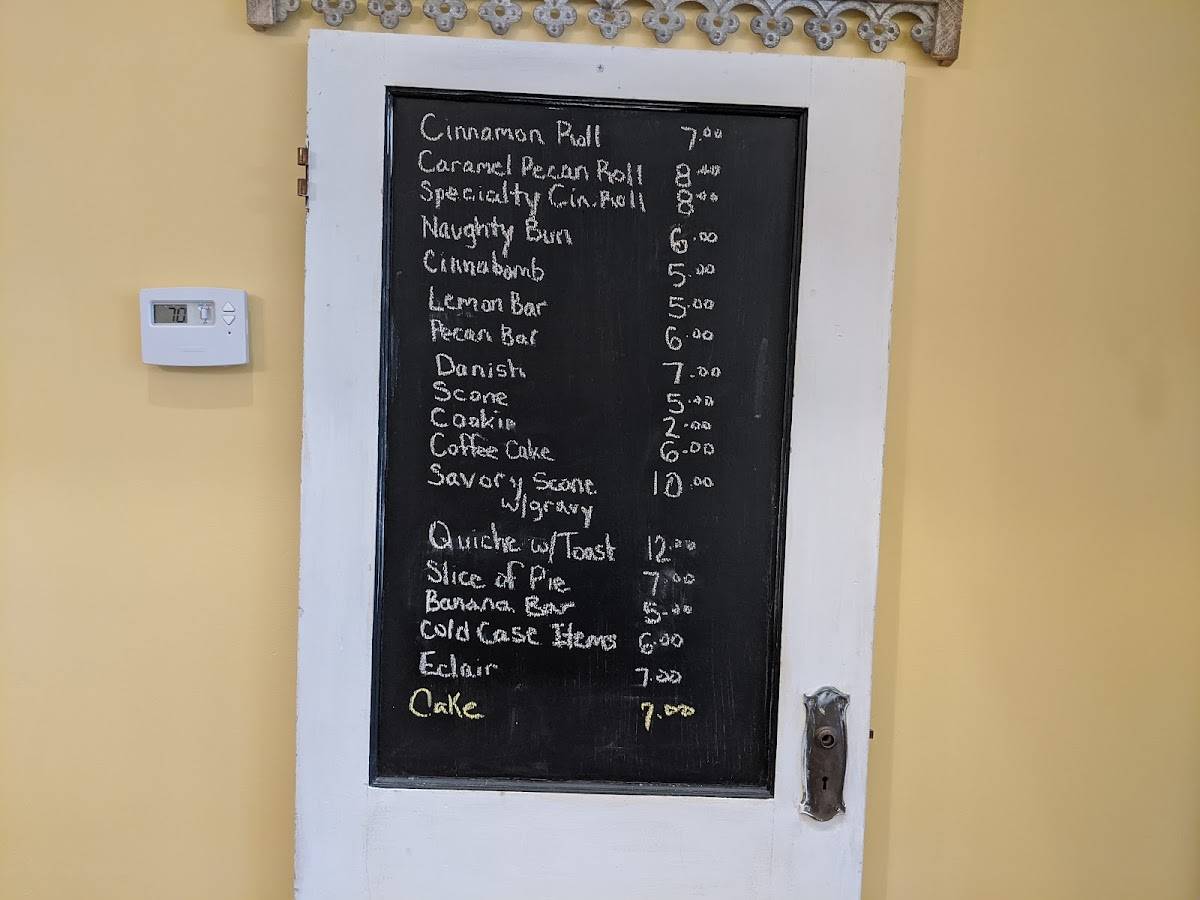 Cinnamon Roll 7.00
Caramel Pecan Roll 8.00
Specialty Cin. Roll 8.00
Naughty Bun 6.00
Cinnabomb 5.00
Lemon Bar 5.00
Pecan Bar 6.00
Danish 7.00
Scone 5.00
Cookie 2.00
Coffee Cake 6.00
Savory Scone 10.00
w/gravy
Quiche w/Toast 12.00
Slice of Pie 7.00
Banana Bar 5.00
Cold Case Items 6.00
Eclair 7.00
Cake 7.00
70